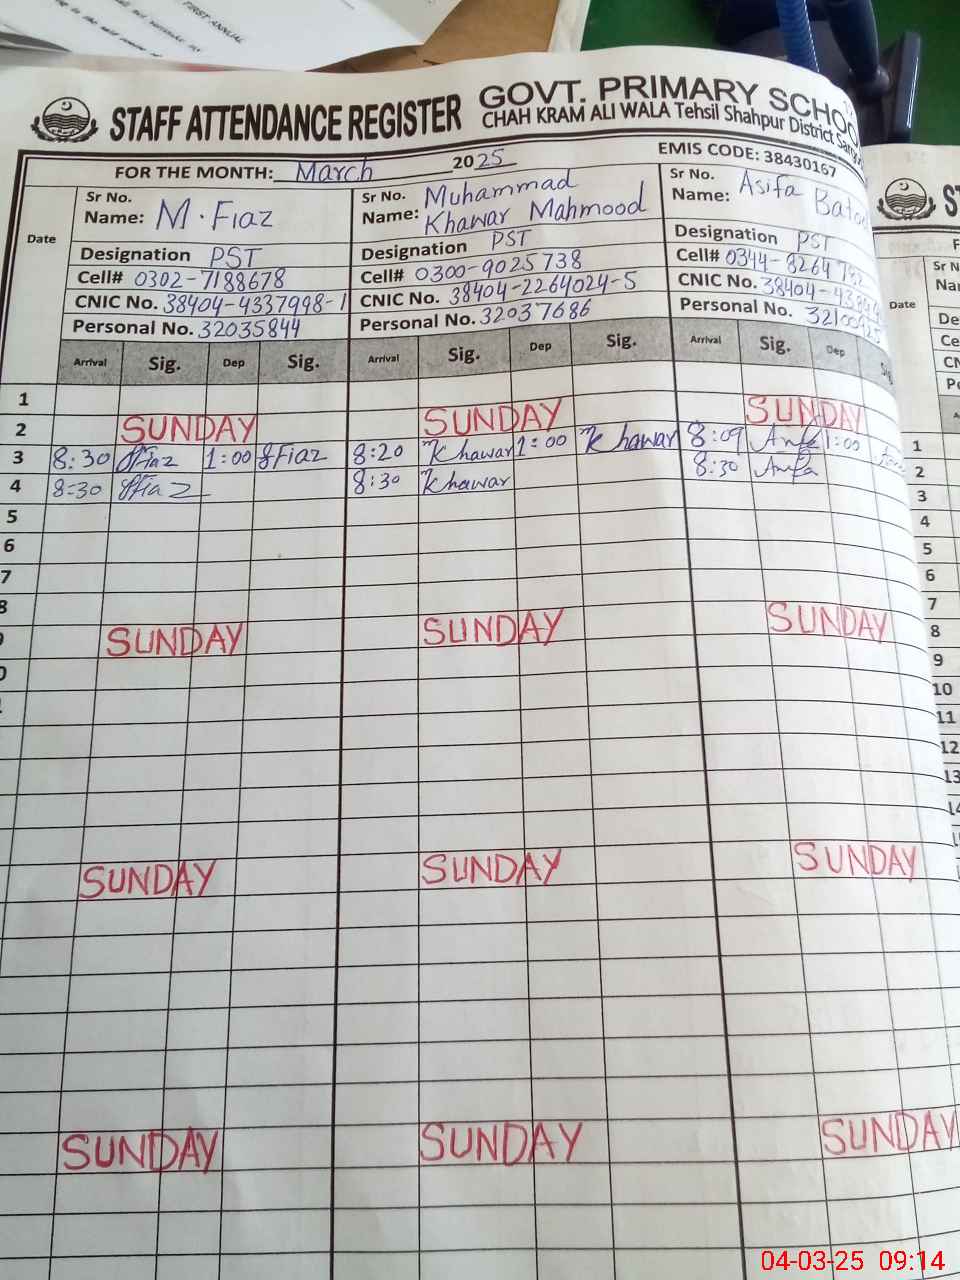 FIRST ANNUAL
STAFF ATTENDANCE REGISTER
GOVT. PRIMARY SCHOO
CHAH KRAM ALI WALA Tehsil Shahpur District
FOR THE MONTH: March 2025
EMIS CODE: 38430167
Date
Sr No.
Name: M. Fiaz
Designation PST
Cell# 0302-7188678
CNIC No. 38404-4337998-1
Personal No. 32035844
Arrival Sig. Dep Sig.
Sr No.
Name: Muhammad
Khawar Mahmood
Designation PST
Cell# 0300-9025738
CNIC No. 38404-2264024-5
Personal No. 32037686
Arrival Sig. Dep Sig.
Sr No.
Name: Asifa
Designation PST
Cell#
CNIC No.
Personal No.
Arrival Sig. Dep Sig
1
2 SUNDAY SUNDAY SUNDAY
3 8:30 Fiaz 1:00 Fiaz 8:20 Khawar 1:00 Khawar 8:09 1:00
4 8:30 Fiaz 8:30 Khawar 8:30
5
6
7
8
SUNDAY SUNDAY SUNDAY
SUNDAY SUNDAY SUNDAY
SUNDAY SUNDAY SUNDAY
Date
Sr N
1
2
3
4
5
6
7
8
9
10
11
12
13
04-03-25 09:14